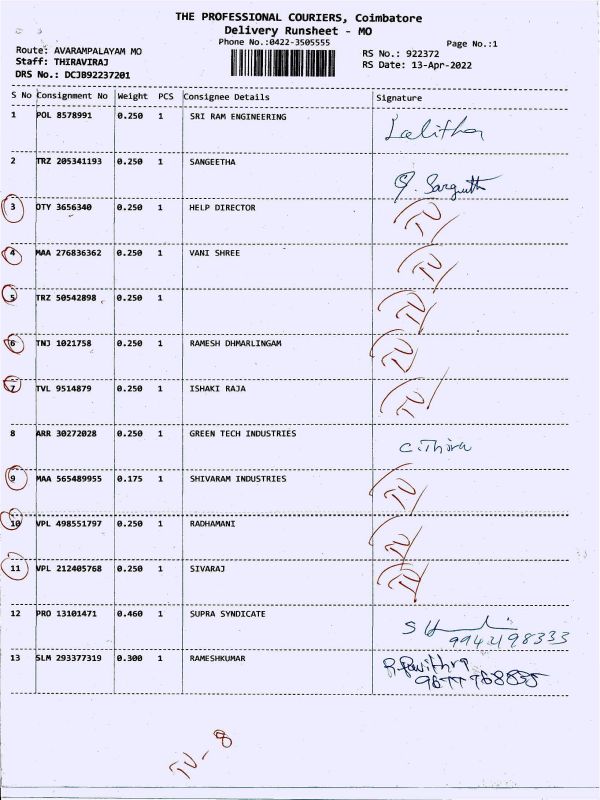 THE PROFESSIONAL COURIERS, Coimbatore
Delivery Runsheet - MO
Phone No.:0422-3505555
Page No.:1
Route: AVARAMPALAYAM MO
Staff: THIRAVIRAJ
DRS No.: DCJB92237201
RS No.: 922372
RS Date: 13-Apr-2022
S No Consignment No Weight PCS Consignee Details Signature
1 POL 8578991 0.250 1 SRI RAM ENGINEERING Lalitha
2 TRZ 205341193 0.250 1 SANGEETHA
3 OTY 3656340 0.250 1 HELP DIRECTOR TV
4 MAA 276836362 0.250 1 VANI SHREE TV
5 TRZ 50542898 0.250 1 TV
6 TNJ 1021758 0.250 1 RAMESH DHMARLINGAM TV
7 TVL 9514879 0.250 1 ISHAKI RAJA TV
8 ARR 30272028 0.250 1 GREEN TECH INDUSTRIES C.Thira
9 MAA 565489955 0.175 1 SHIVARAM INDUSTRIES TV
10 VPL 498551797 0.250 1 RADHAMANI TV
11 VPL 212405768 0.250 1 SIVARAJ TV
12 PRO 13101471 0.460 1 SUPRA SYNDICATE
13 SLM 293377319 0.300 1 RAMESHKUMAR R.Pavithra
9677768855
TV - 8